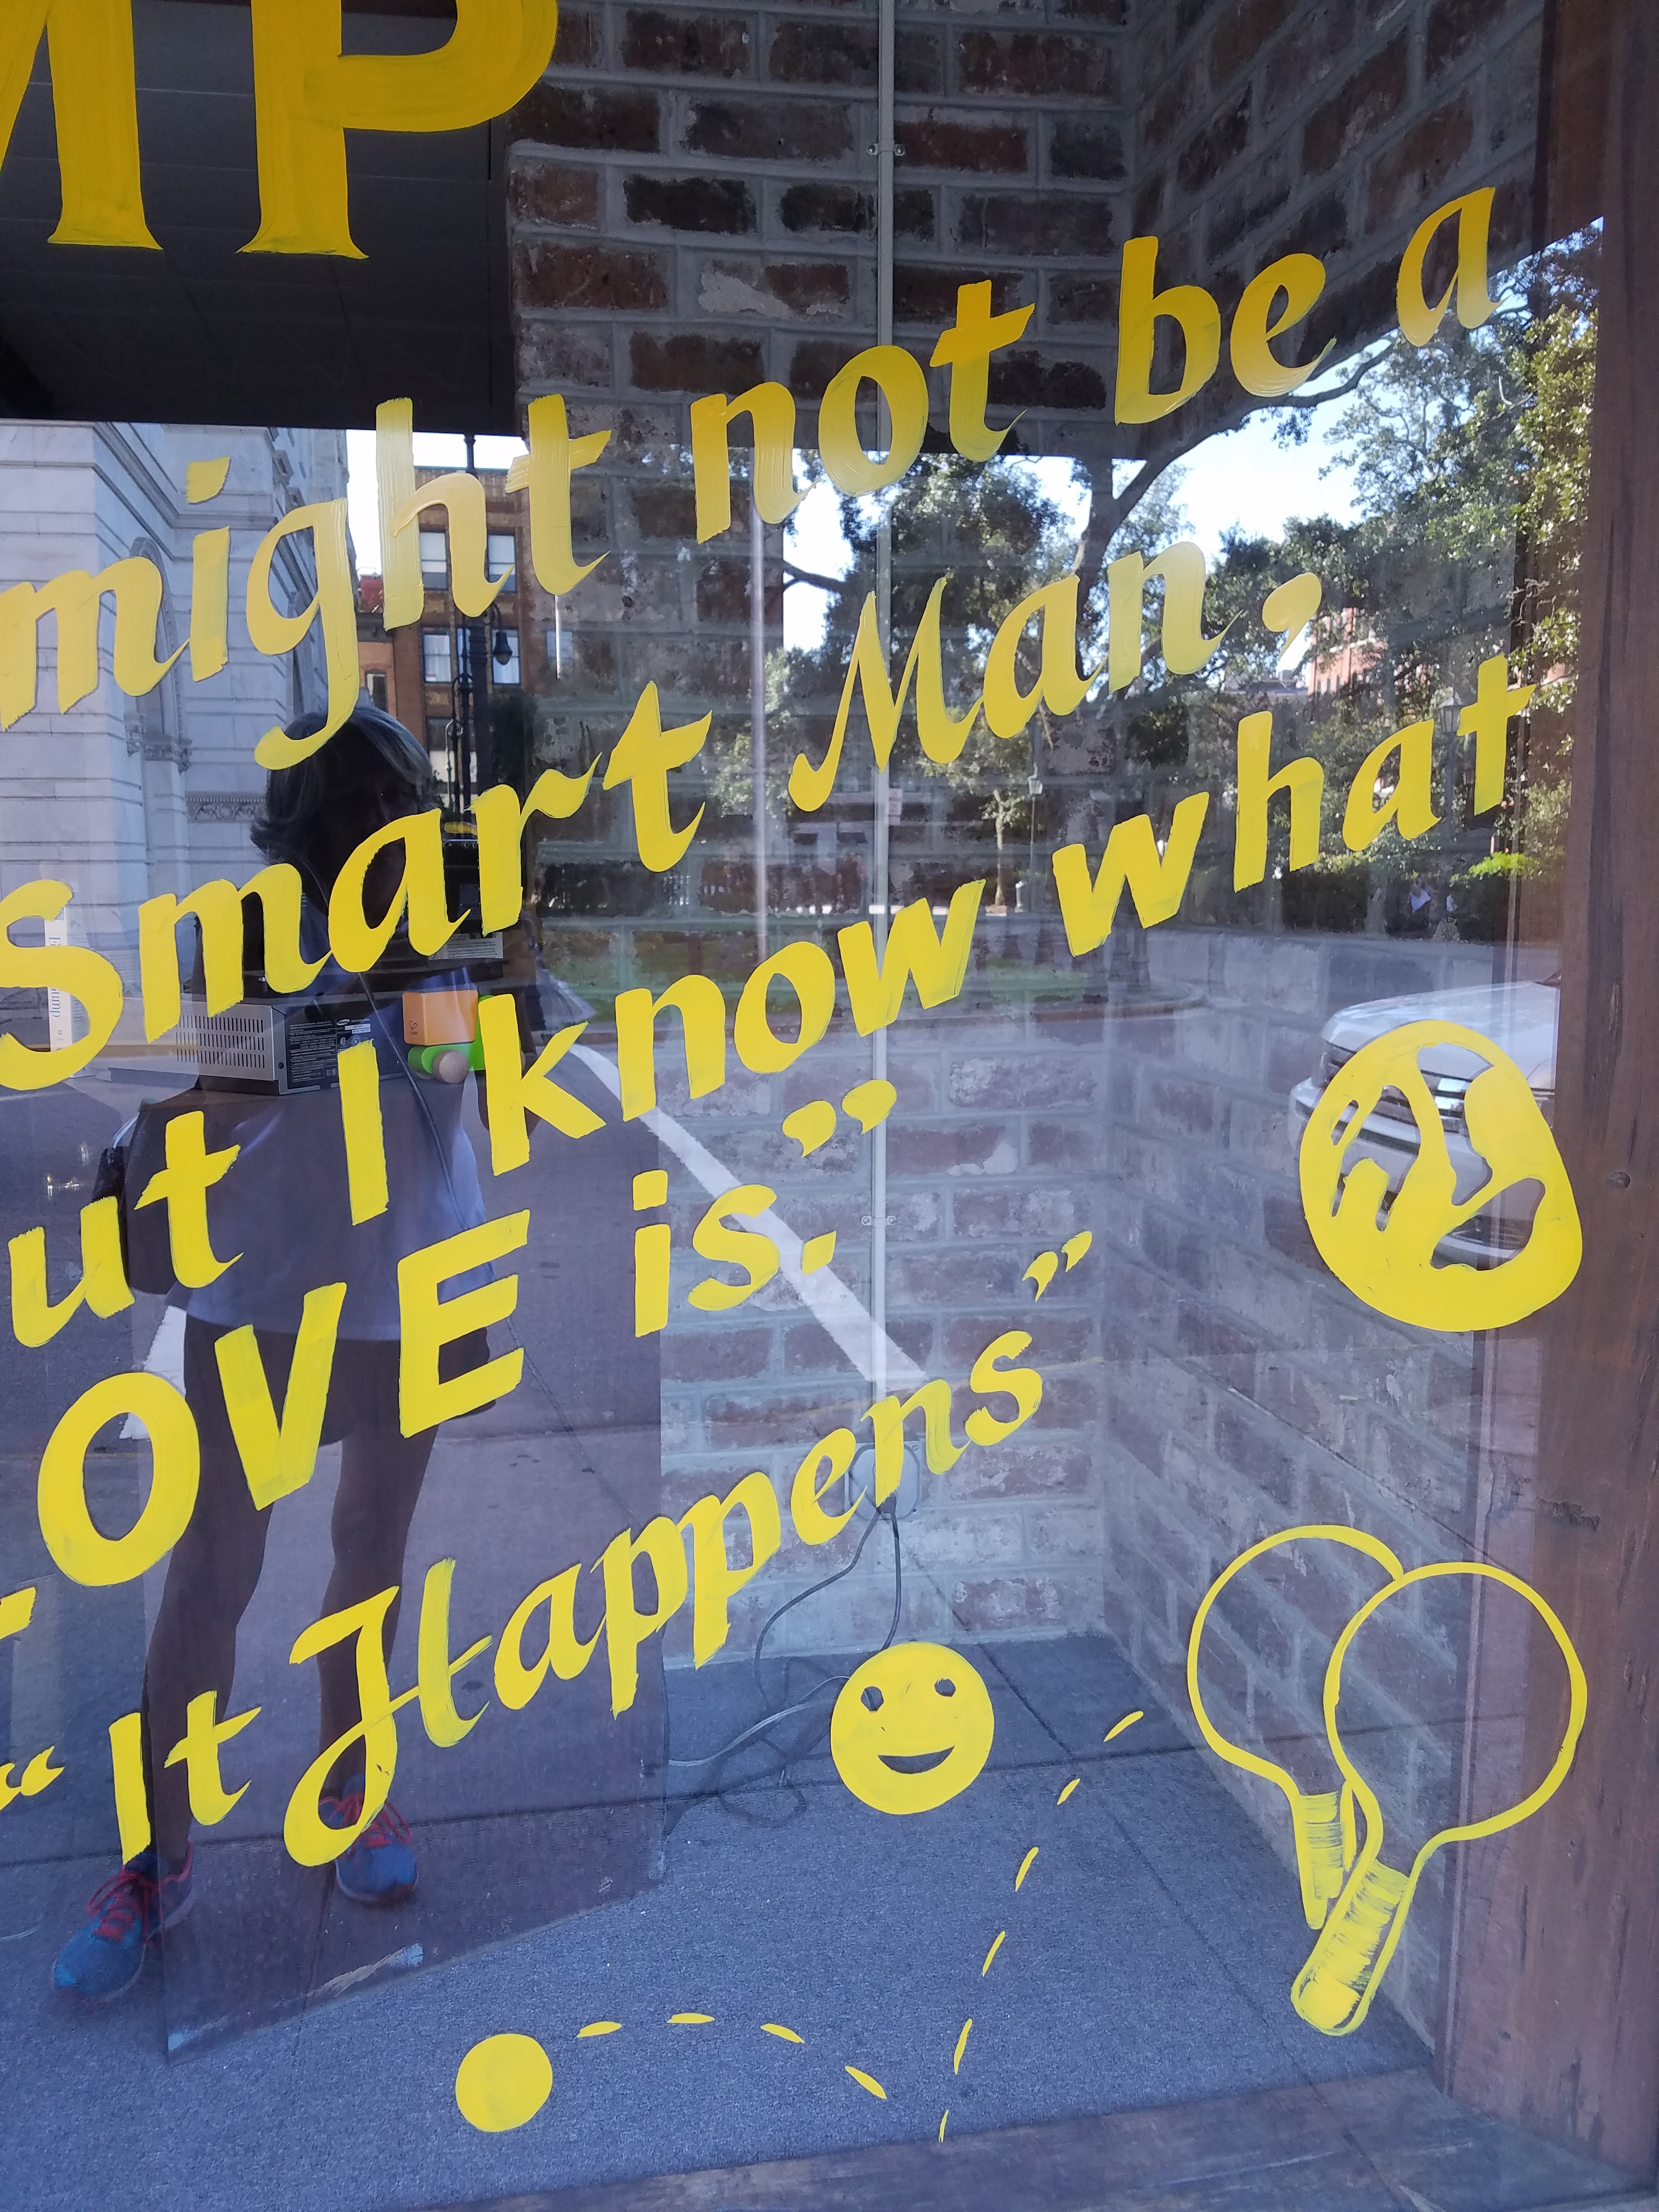 MP
might not be a
Smart Man,
ut I know what
OVE is.”
“It Happens”